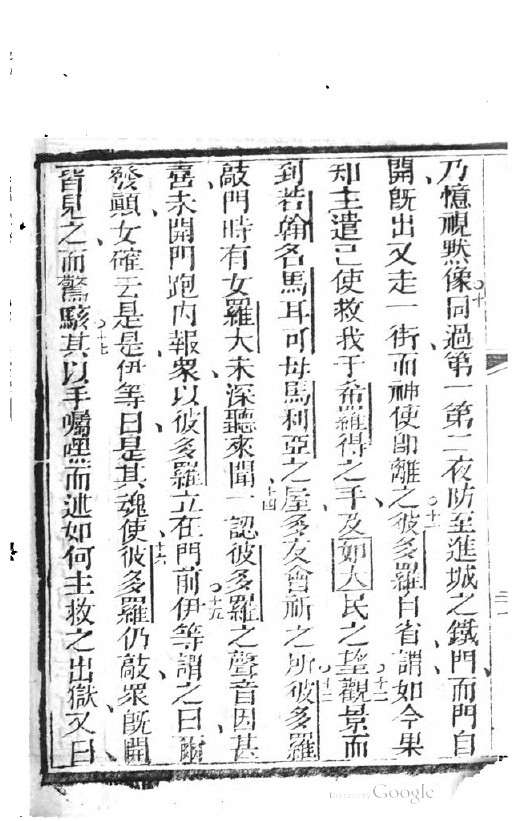 乃憶視默像同過第一第二夜防至進城之鐵門而門自
開旣出又走一街而神使卽離之彼多羅自省謂如今果
知主遣己使救我于希羅得之手及如大民之望觀景而
到若翰名馬耳可母馬利亞之屋多友會祈之所彼多羅
敲門時有女羅大未深聽來聞一認彼多羅之聲音因甚
喜未開門跑內報眾以彼多羅立在門前伊等謂之曰爾
發顛女確云是是伊等曰是其魂使彼多羅仍敲眾旣開
皆見之而驚駭其以手囑嘿而述如何主救之出獄又曰
Google